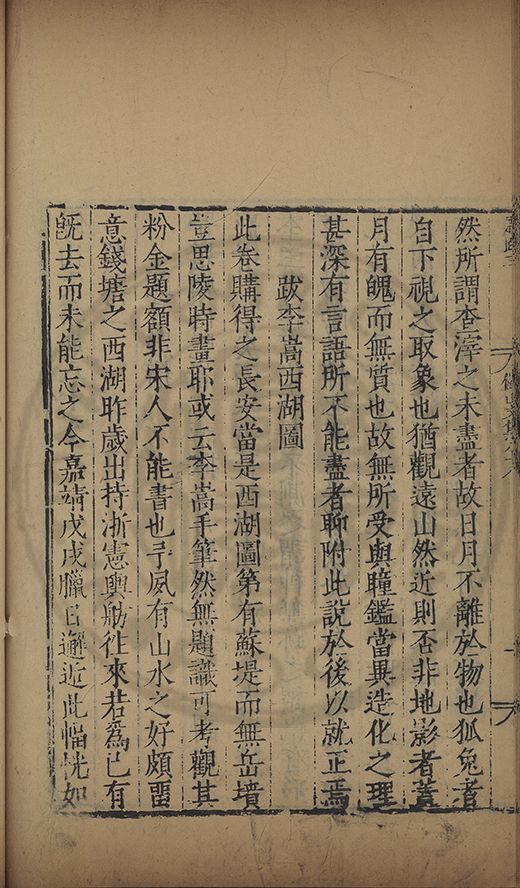 然所謂查滓之未盡者故日月不離於物也狐兔者
自下視之取象也猶觀遠山然近則否非地影者蓋
月有魄而無質也故無所受與瞳鑑當異造化之理
甚深有言語所不能盡者聊附此說於後以就正焉
跋李嵩西湖圖
此卷購得之長安當是西湖圖第有蘇堤而無岳墳
豈思陵時畫耶或云李嵩手筆然無題識可考觀其
粉金題額非宋人不能書也予夙有山水之好頗畱
意錢塘之西湖昨歲出持浙憲輿舫徃來若爲已有
旣去而未能忘之今嘉靖戊戌臘日邂近此幅恍如